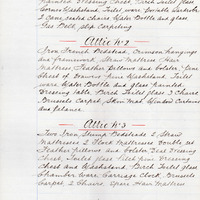 Painted Dressing Chest, Birch Toilet glass
Screens Washstand, Toilet ware Portable
2 Cane seated Chairs Water Bottle and glass
Bell, slip Carpeting
Attic No 2
Iron French Bedstead, Crimson hangings
and framework, Straw Mattress, Hair
Mattress, Feather Pillows and Bolster,
Chest of Drawers, pine Washstand, Toilet
ware, Water Bottle and glass, painted
Dressing table, Birch Toilet glass 3 Chairs
Brussels Carpet, Skin Mat, Window Curtains
and
Attic No 3
Two Iron Stump Bedsteads 2 Straw
Mattresses 2 Flock Mattresses Double set
Feather pillows and bolster Deal Dressing
Chest, Toilet glass Pitch pine Dressing
Chest and Washstand, Birch Toilet glass
Chamber ware Carriage Clock, Brussels
Carpet 2 Chairs, Spare Hair Mattress